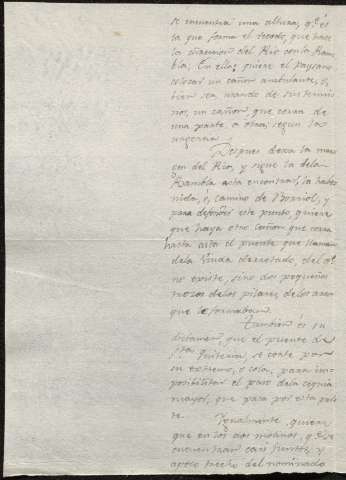 se encuentra una altura, q.e es
la que forma el recodo, que hace
la union del Rio con la Ram-
bla; En ella quiere el paysano
colocar un cañon ambulante, ó,
bien sea, usando de sus termi-
nos, un cañon, que corra de
una parte, a otra, segun la
urgencia.
Despues dexa la mar-
gen del Rio, y sigue la dela
Rambla asta encontrar, la habe-
nida, ó, camino de Borriol, y
para defender este punto, quiere
que haya otro cañon que corra
hasta asta el puente que llaman
dela Viuda derrotado, del q.e
no existe, sino dos pequeños
trozos delos pilares, delos arcos
que le formaban.
Tambien és su
dictamen, que el puente de
S.ta Quiteria, se corte por
su extremo, o cola, para im-
posibilitar el paso dela cequia
mayor, que pasa por esta par-
te.
Igualmente, quiere
que en los dos molinos, q.e se
encuentran casi juntos, y
apoco trecho del nominado